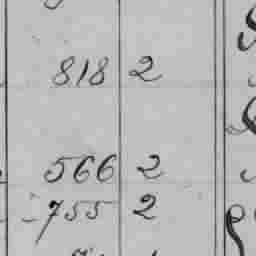 818 2
566 2
755 2